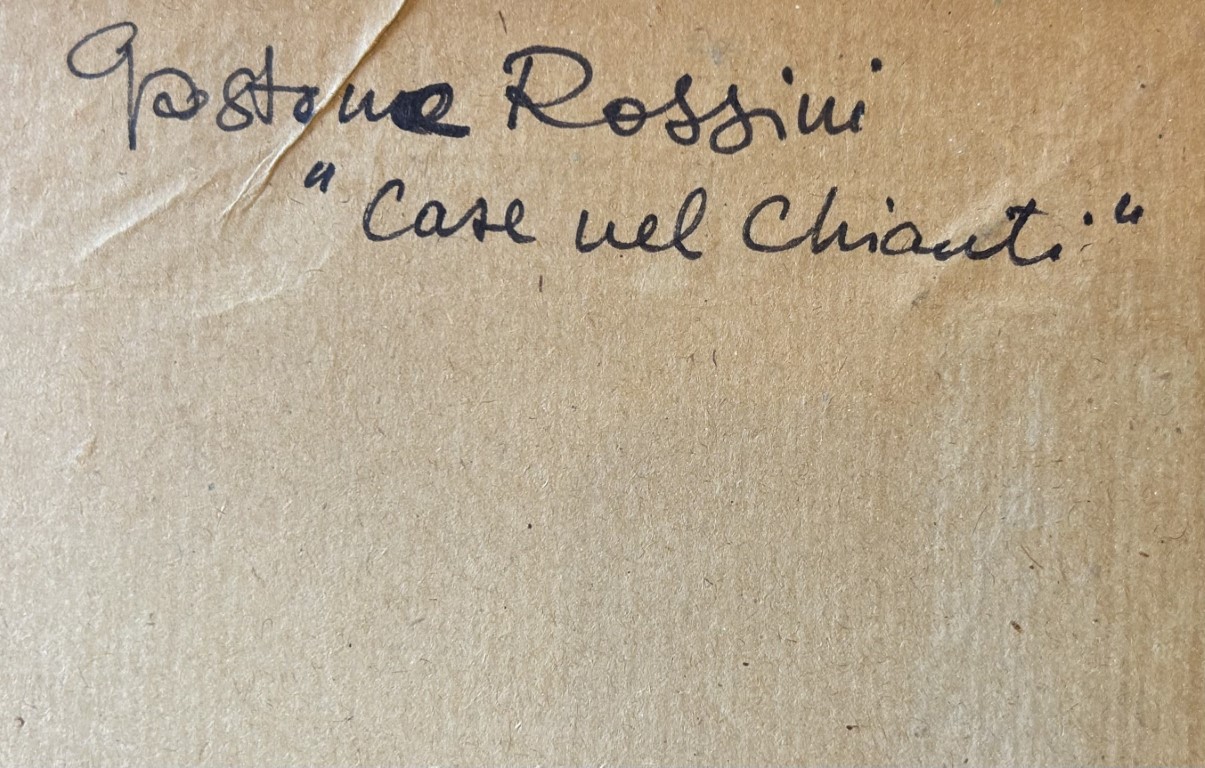 Gastone Rossini
"Case nel Chianti."